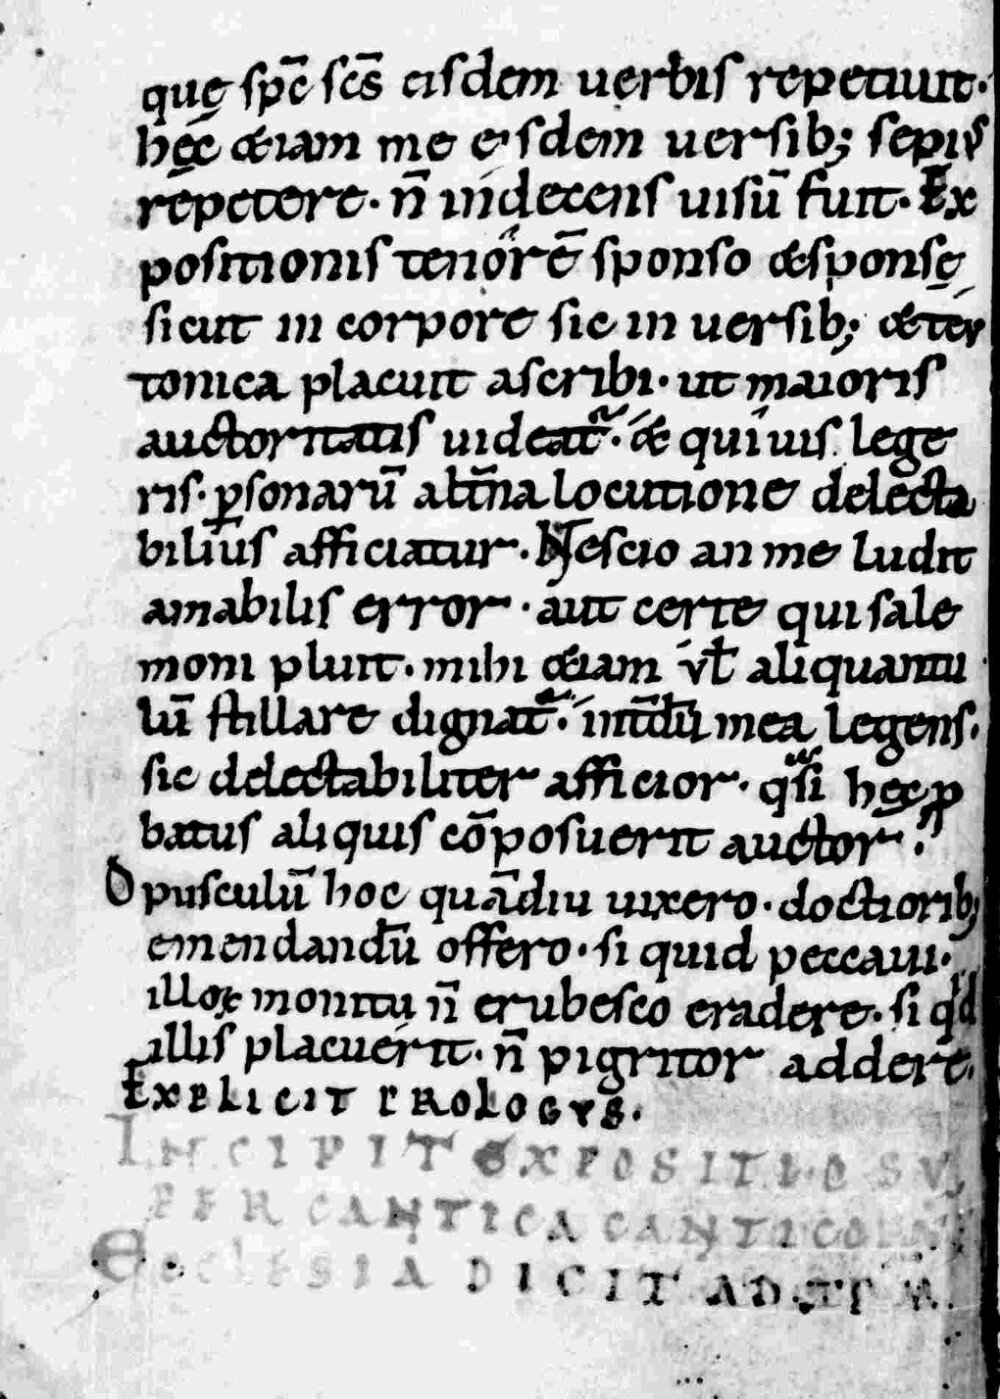 quę sp̄c sc̄s eisdem uerbis repetiuit.
hęc &iam me eisdem uersib; sępius
repetere. n̄ indecens uisū fuit. Ex
positionis tenorē sponso &sponsę
sicut in corpore sic in uersib;
tonica placuit ascribi. ut maioris
auctoritatis uideat̄. & quiuis lege
ris. ꝑsonarū alt̄na locutione delecta
bilius afficiatur. Nescio an me ludit
amabilis error. aut certe qui sale
moni pluit. mihi &iam vł aliquantu
lū stillare dignat̄. int̄dū mea legens.
sic delectabiliter afficior. qᵃsi hęc ꝓ
batus aliquis cōposuerit auctor.
Opusculū hoc quādiu uixero. doctiorib;
emendandū offero. si quid peccaui.
illoꝝ monitu n̄ erubesco eradere. si qͥd
illis placuerit. n̄ pigritor addere.
EXPLICIT PROLOGVS.
INCIPIT EXPOSITIO SV
PER CANTICA
ECCLESIA DICIT AD